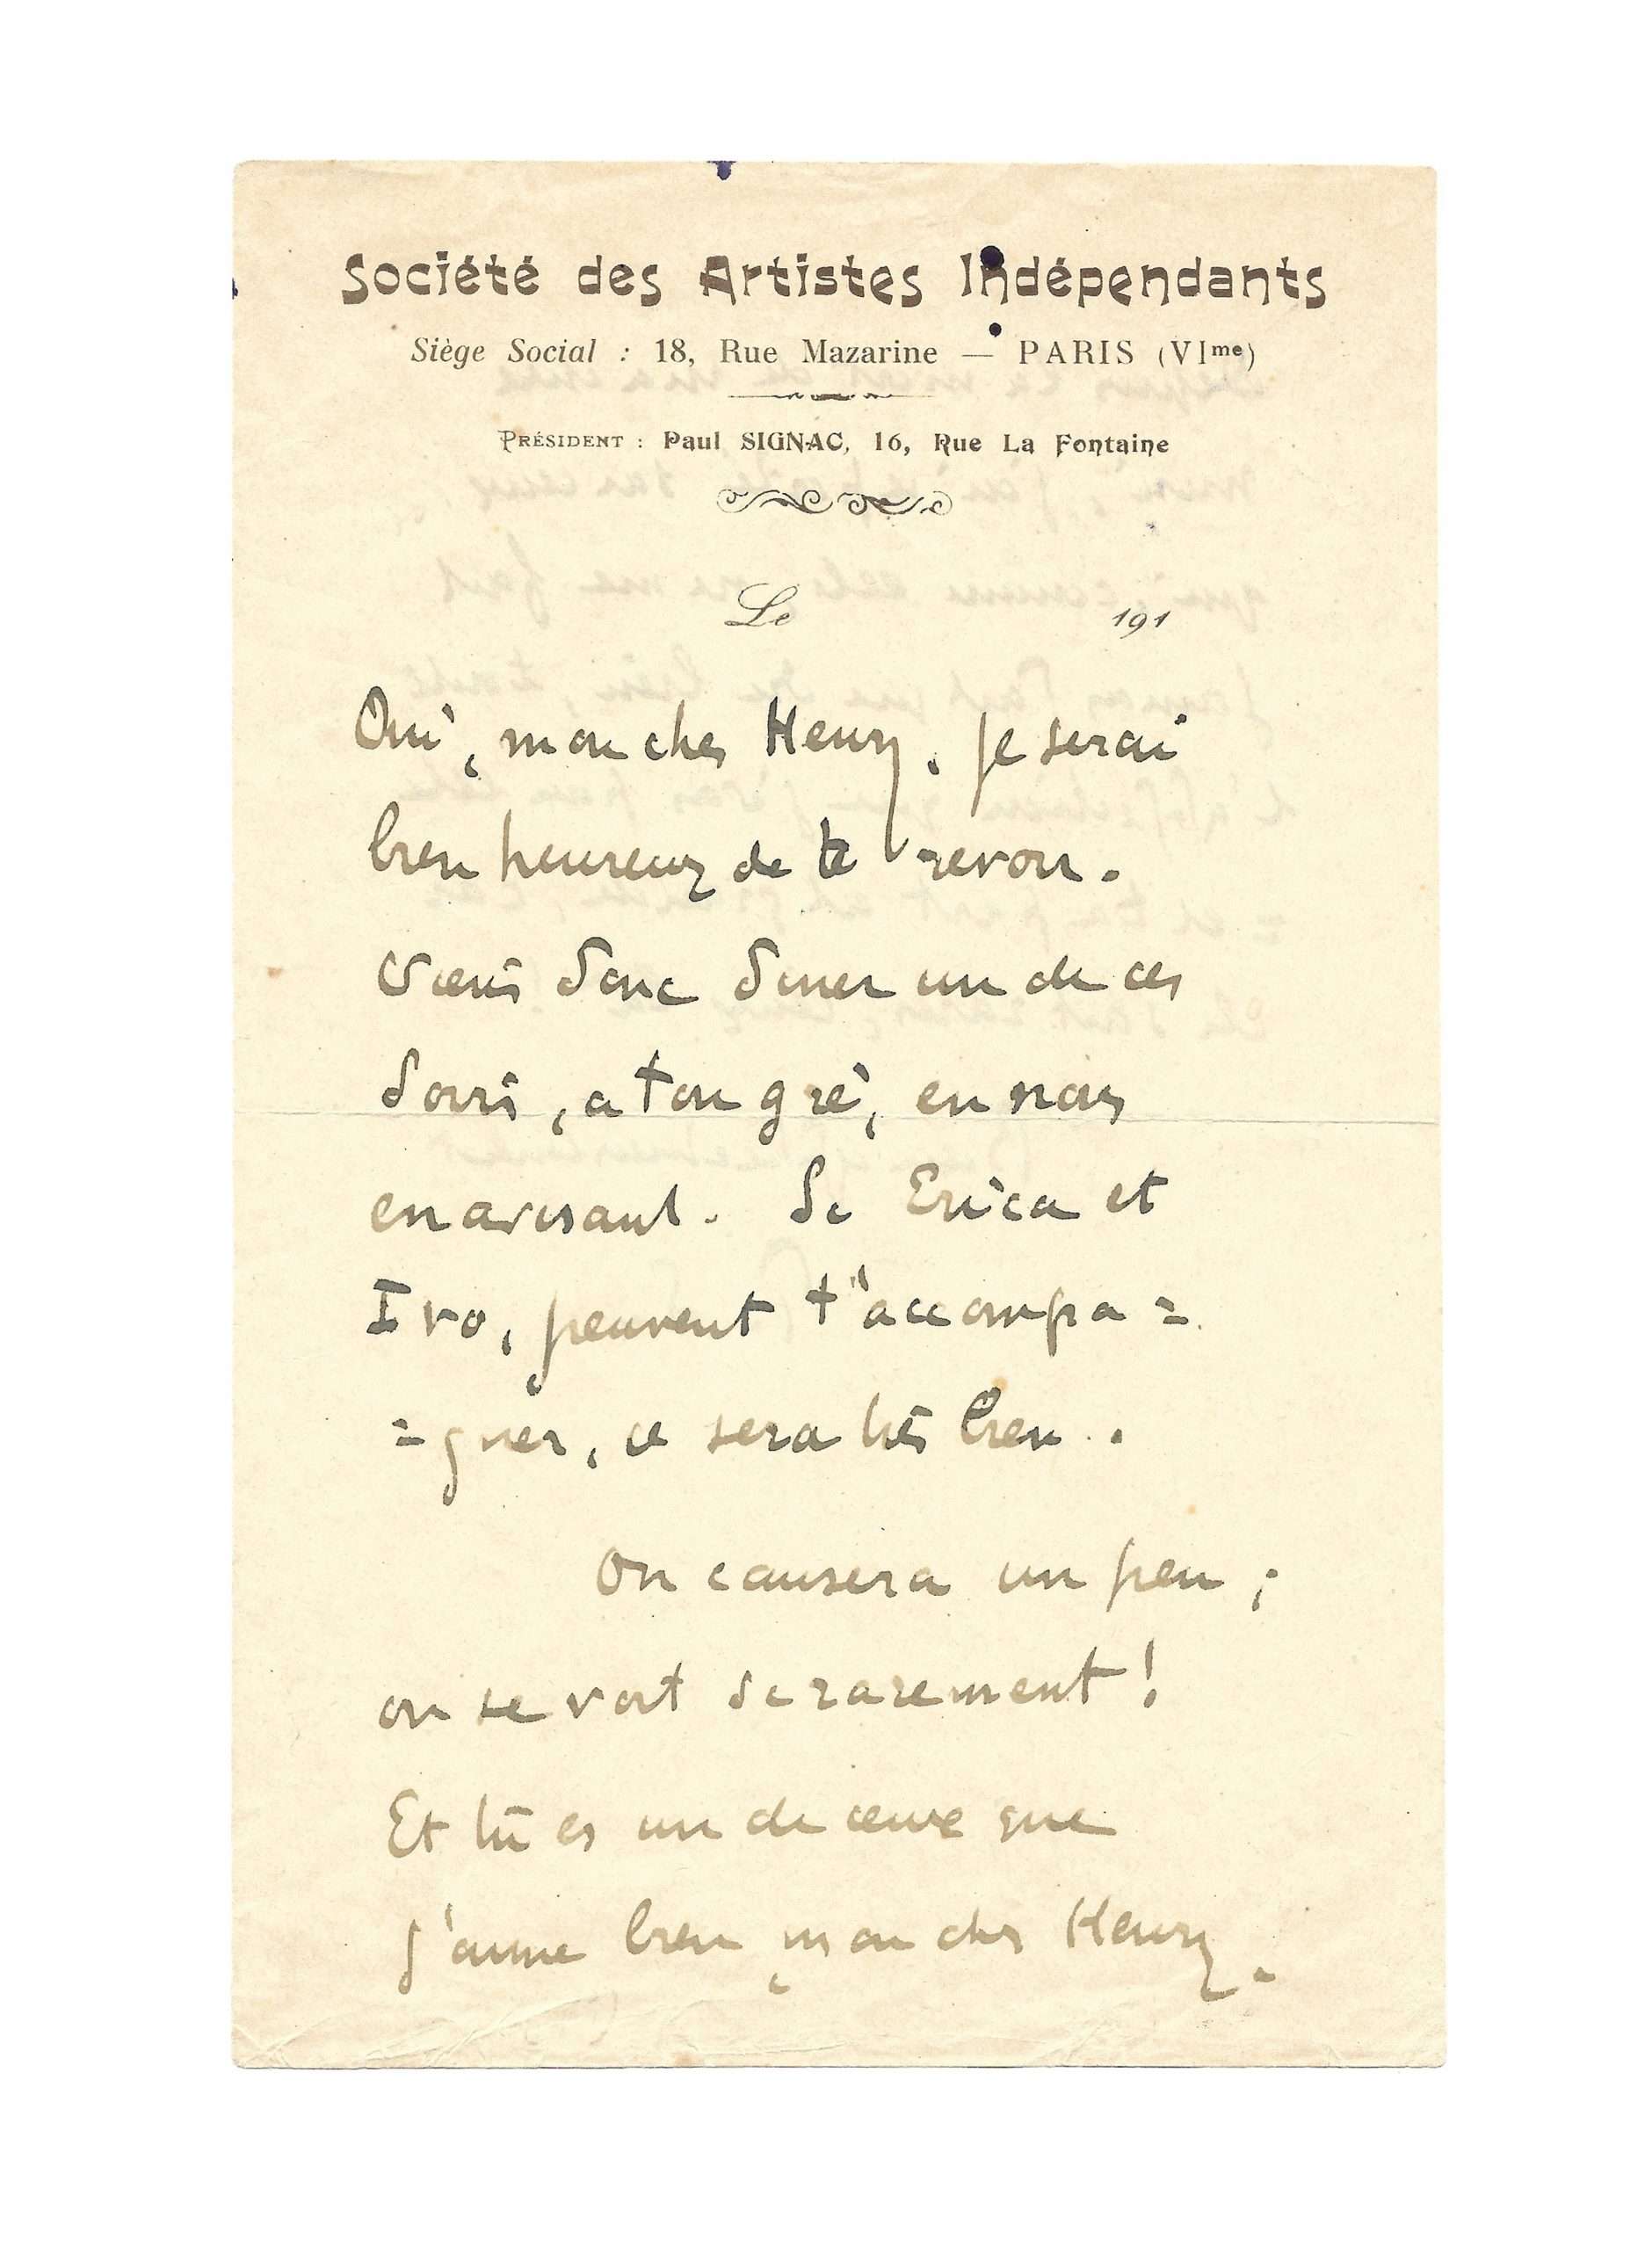 Société des Artistes Indépendants
Siège Social : 18, Rue Mazarine — PARIS (VIme)
PRÉSIDENT : Paul SIGNAC, 16, Rue La Fontaine
Le 191
Oui, mon cher Henry. je serai
bien heureux de te revoir.
Viens donc diner un de ces
soirs, a ton gré, en nous
en avisant. Si Erica et
Ivo, peuvent t'accompa=
=gner, ce sera très bien.
On causera un peu ;
on se voit si rarement !
Et tu es un de ceux que
j'aime bien, mon cher Henry.